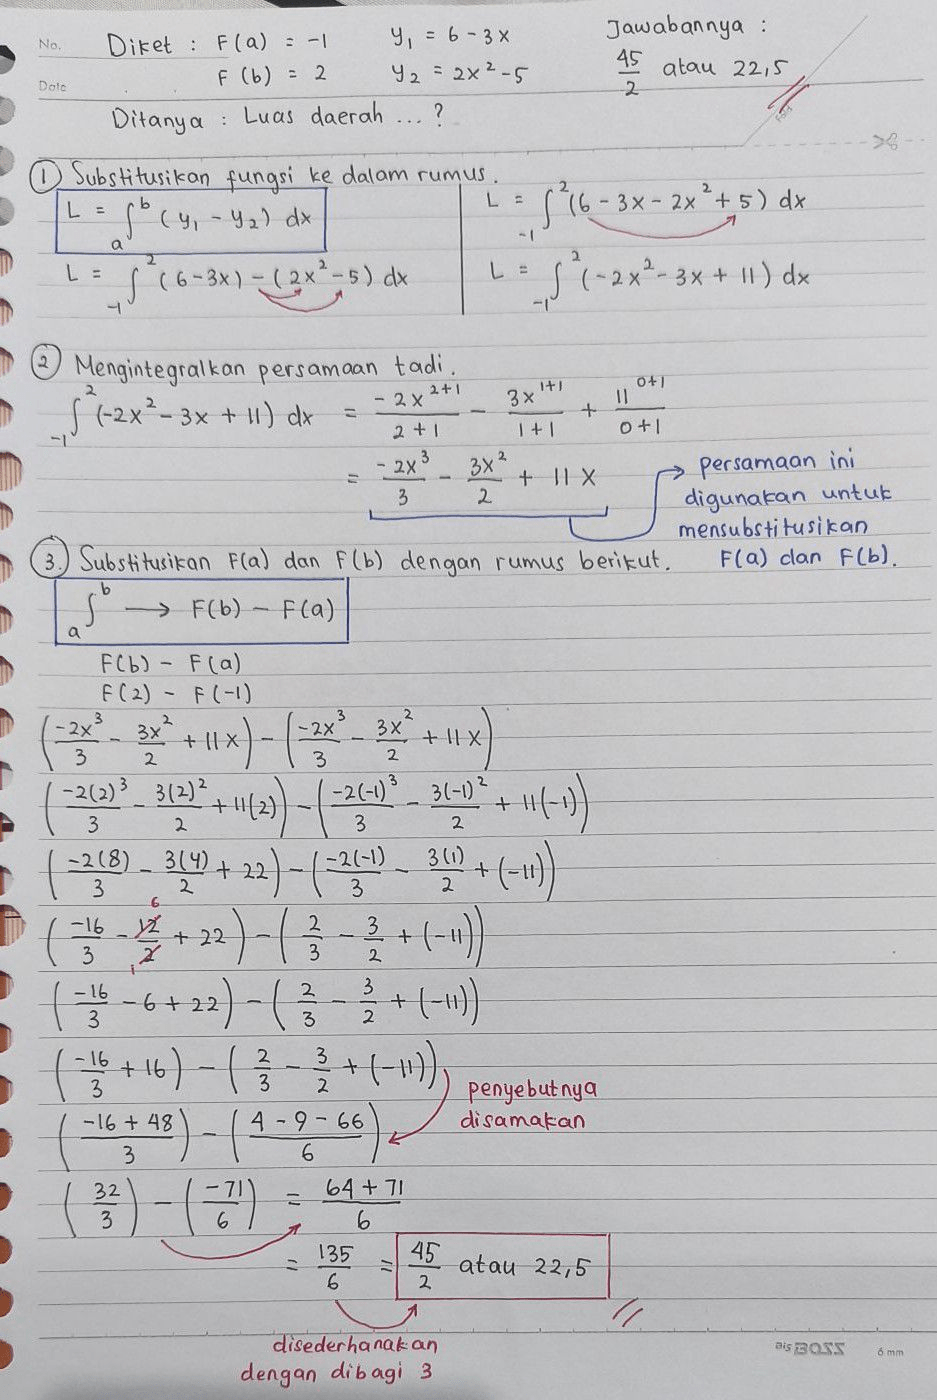 No.
Date
Diket : F(a) = -1   y₁ = 6 - 3x
F(b) = 2   y₂ = 2x² - 5
Jawabannya :
45/2 atau 22,5
Ditanya : Luas daerah ... ?
① Substitusikan fungsi ke dalam rumus.
L = ∫ₐᵇ (y₁ - y₂) dx
L = ∫₋₁² (6 - 3x) - (2x² - 5) dx
L = ∫₋₁² (6 - 3x - 2x² + 5) dx
L = ∫₋₁² (-2x² - 3x + 11) dx
② Mengintegralkan persamaan tadi.
∫₋₁² (-2x² - 3x + 11) dx = -2x²⁺¹/2+1 - 3x¹⁺¹/1+1 + 11⁰⁺¹/0+1
= -2x³/3 - 3x²/2 + 11x
persamaan ini
digunakan untuk
mensubstitusikan
F(a) dan F(b).
③. Substitusikan F(a) dan F(b) dengan rumus berikut.
∫ₐᵇ → F(b) - F(a)
F(b) - F(a)
F(2) - F(-1)
(-2x³/3 - 3x²/2 + 11x) - (-2x³/3 - 3x²/2 + 11x)
(-2(2)³/3 - 3(2)²/2 + 11(2)) - (-2(-1)³/3 - 3(-1)²/2 + 11(-1))
(-2(8)/3 - 3(4)/2 + 22) - (-2(-1)/3 - 3(1)/2 + (-11))
(-16/3 - 12/2 6 1 + 22) - (2/3 - 3/2 + (-11))
(-16/3 - 6 + 22) - (2/3 - 3/2 + (-11))
(-16/3 + 16) - (2/3 - 3/2 + (-11))
penyebutnya
disamakan
(-16 + 48/3) - (4 - 9 - 66/6)
(32/3) - (-71/6) = 64 + 71/6
= 135/6 = 45/2 atau 22,5
disederhanakan
dengan dibagi 3
Bis BOSS 6 mm